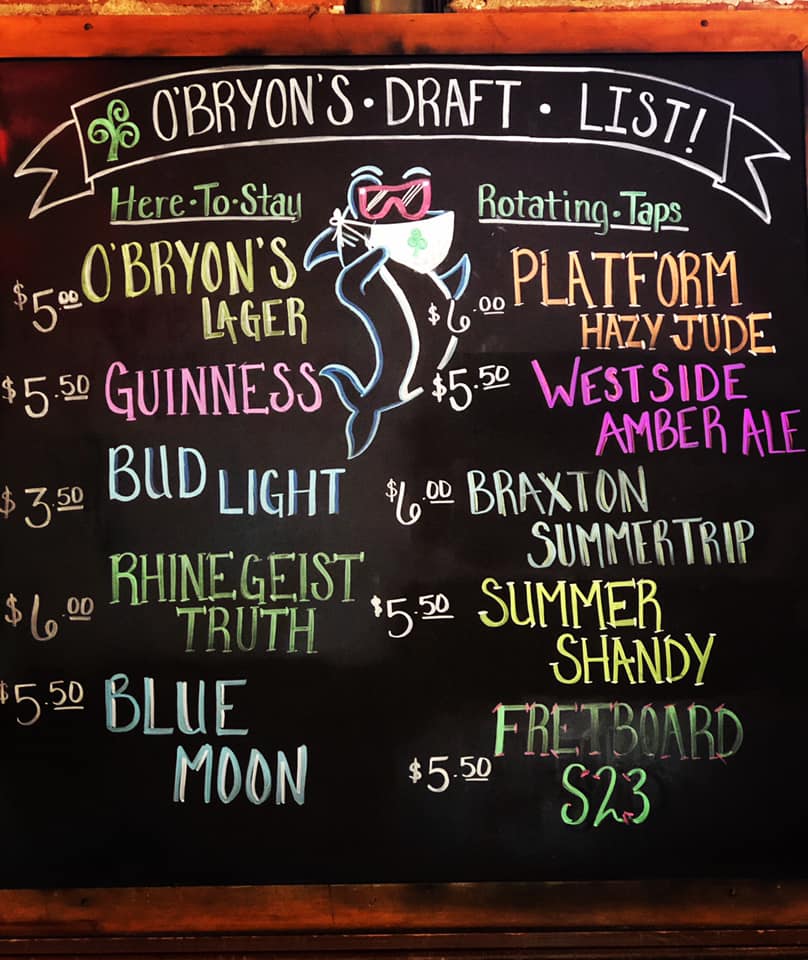 O'BRYON'S · DRAFT · LIST!
Here·To·Stay
$5.00 O'BRYON'S
LAGER
$5.50 GUINNESS
$3.50 BUD LIGHT
$6.00 RHINEGEIST
TRUTH
$5.50 BLUE
MOON
Rotating·Taps
$6.00 PLATFORM
HAZY JUDE
$5.50 WESTSIDE
AMBER ALE
$6.00 BRAXTON
SUMMERTRIP
$5.50 SUMMER
SHANDY
$5.50 FRETBOARD
S23